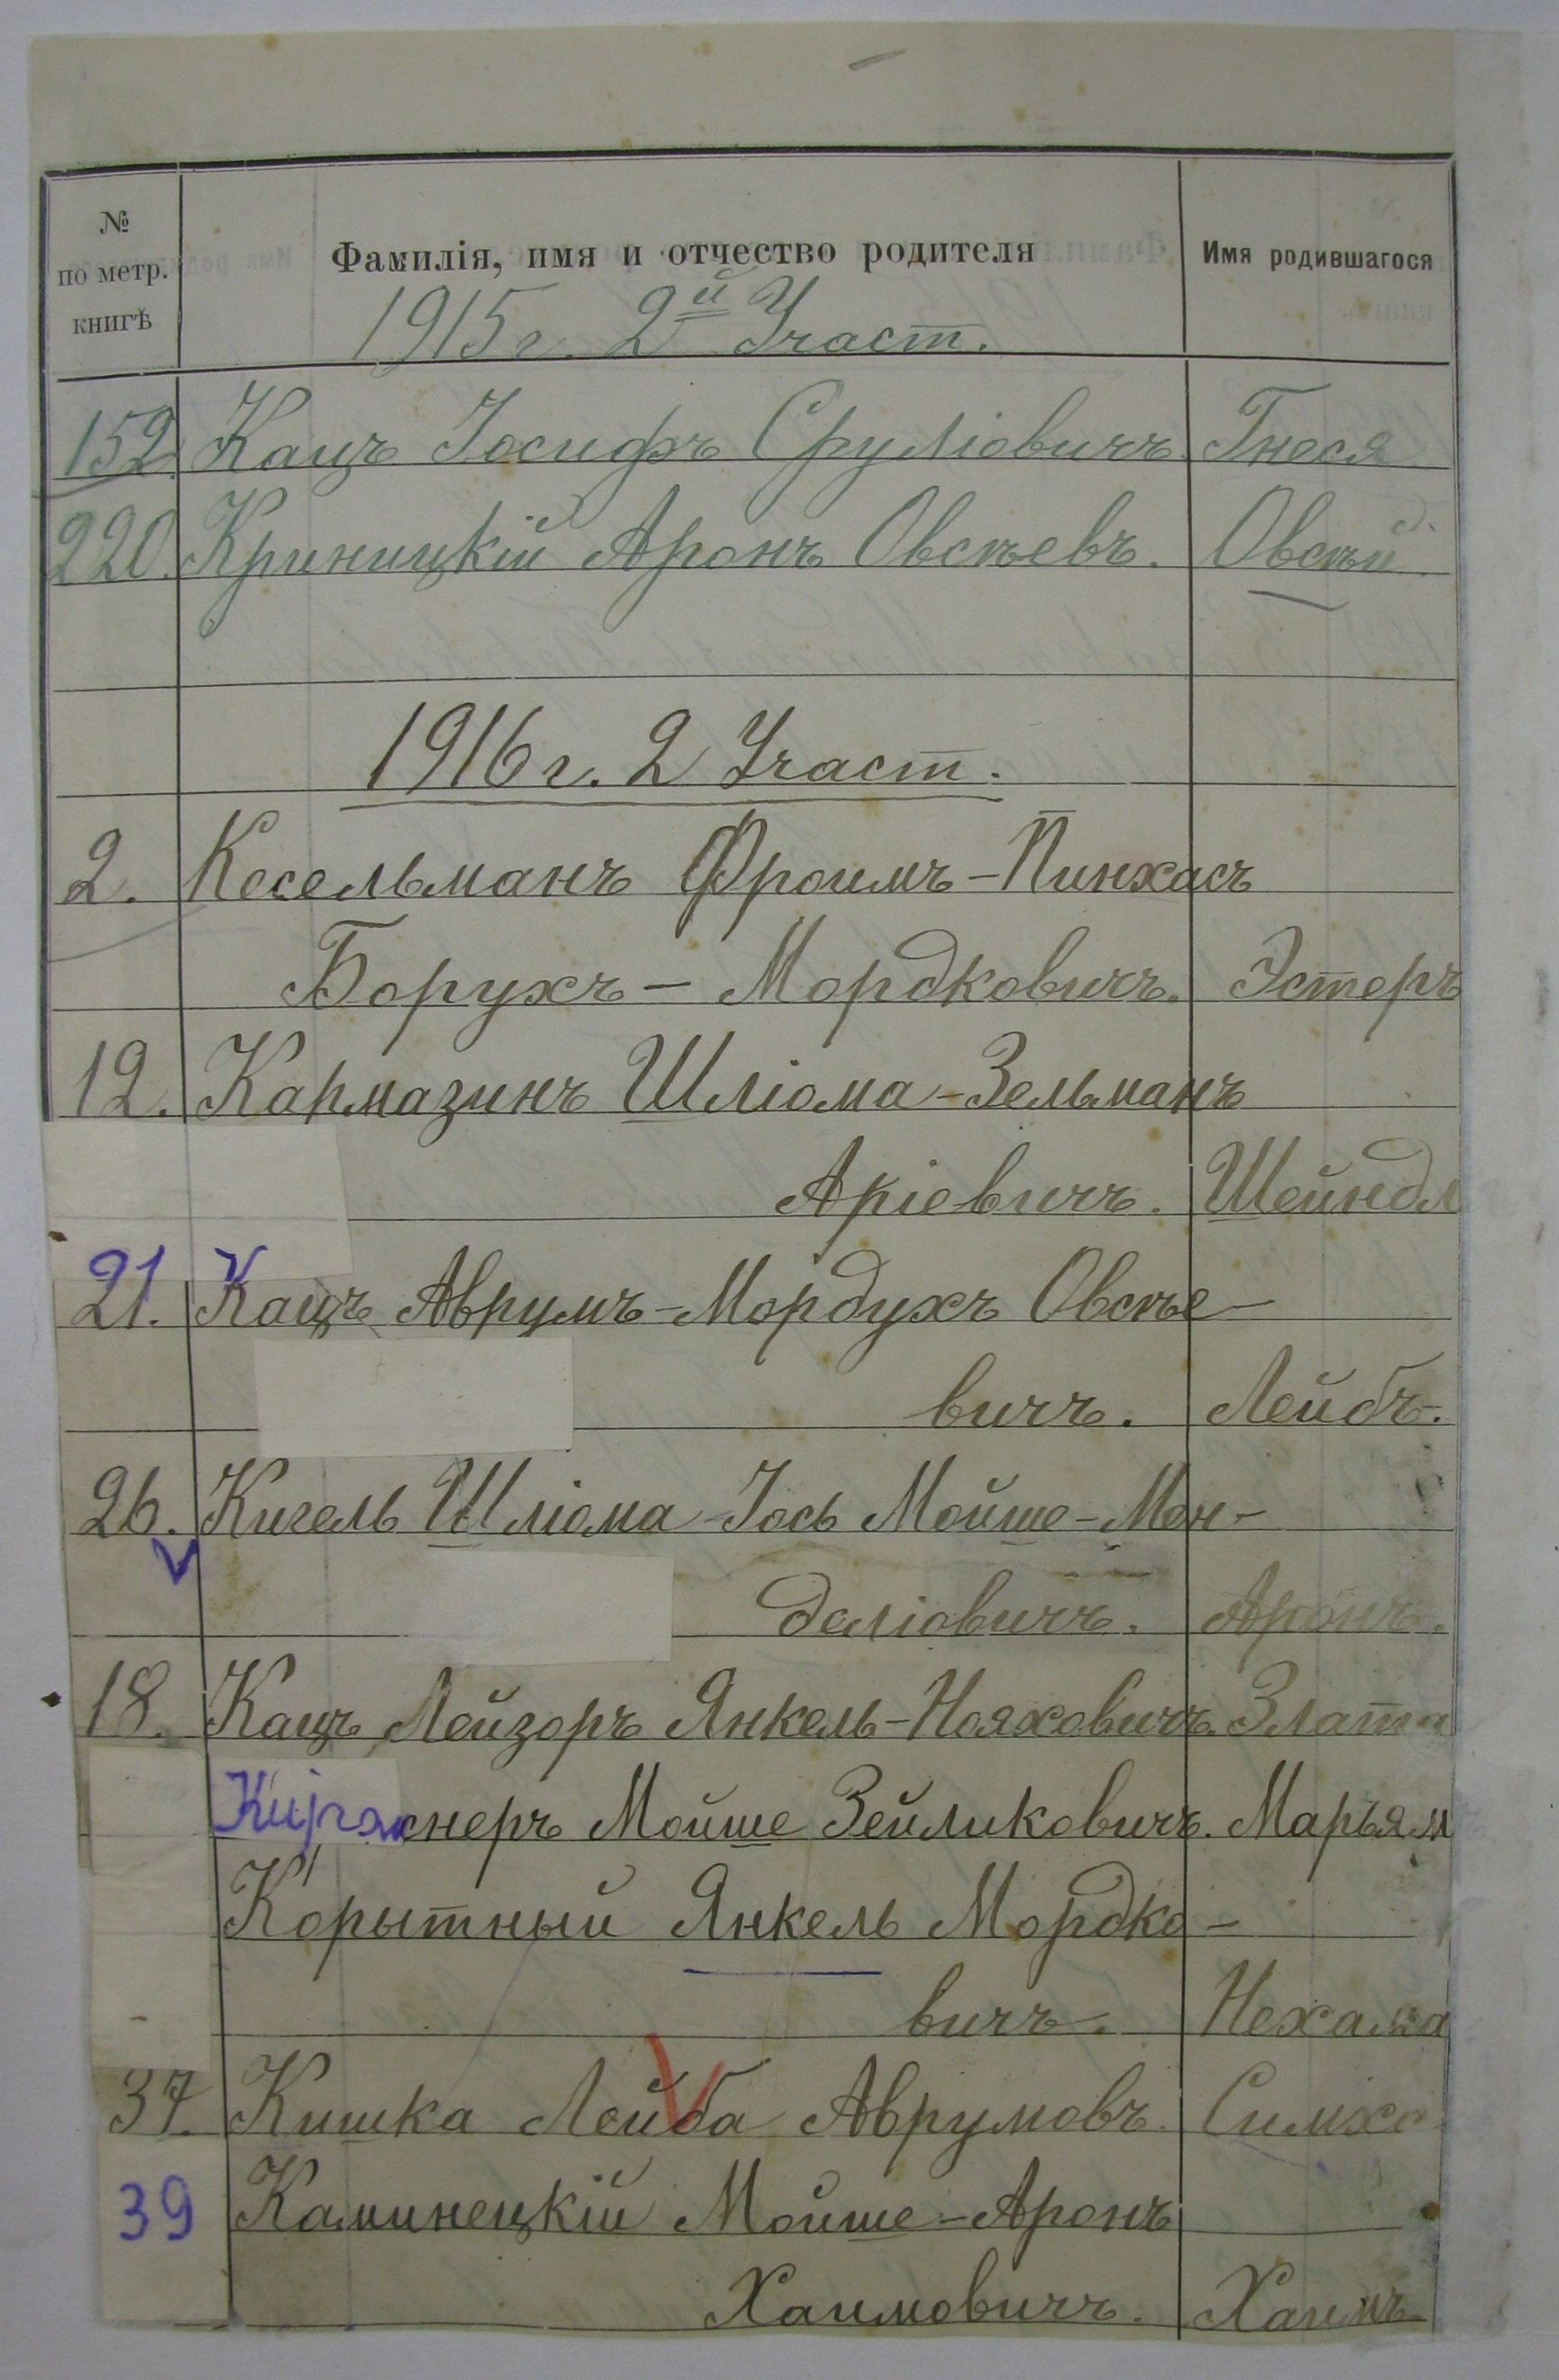 № по метр. книгѣ Фамилія, имя и отчество родителя Имя родившагося
1915 г. 2й Участ.
152. Кацъ Іосифъ Сруліовичъ. Гнеся
220. Криницкій Аронъ Овсѣевъ. Овсѣй
1916 г. 2 Участ.
2. Кесельманъ Фроимъ-Пинхасъ
Борухъ-Мордковичъ. Эстеръ
12. Кармазинъ Шліома-Зельманъ
Аріевичъ. Шейндл
21. Кацъ Аврумъ-Мордухъ Овсѣе-
вичъ. Лейбъ.
26. Кигель Шліома-Іось Мойше-Мен-
деліовичъ. Аронъ.
18. Кацъ Лейзоръ Янкель-Нояховичъ. Злата
снеръ Мойше Зейликовичъ. Марьям
Корытный Янкель Мордко-
вичъ. Нехама
37. Кишка Лейба Аврумовъ. Симха
39 Каминецкій Мойше-Аронъ
Хаимовичъ. Хаимъ